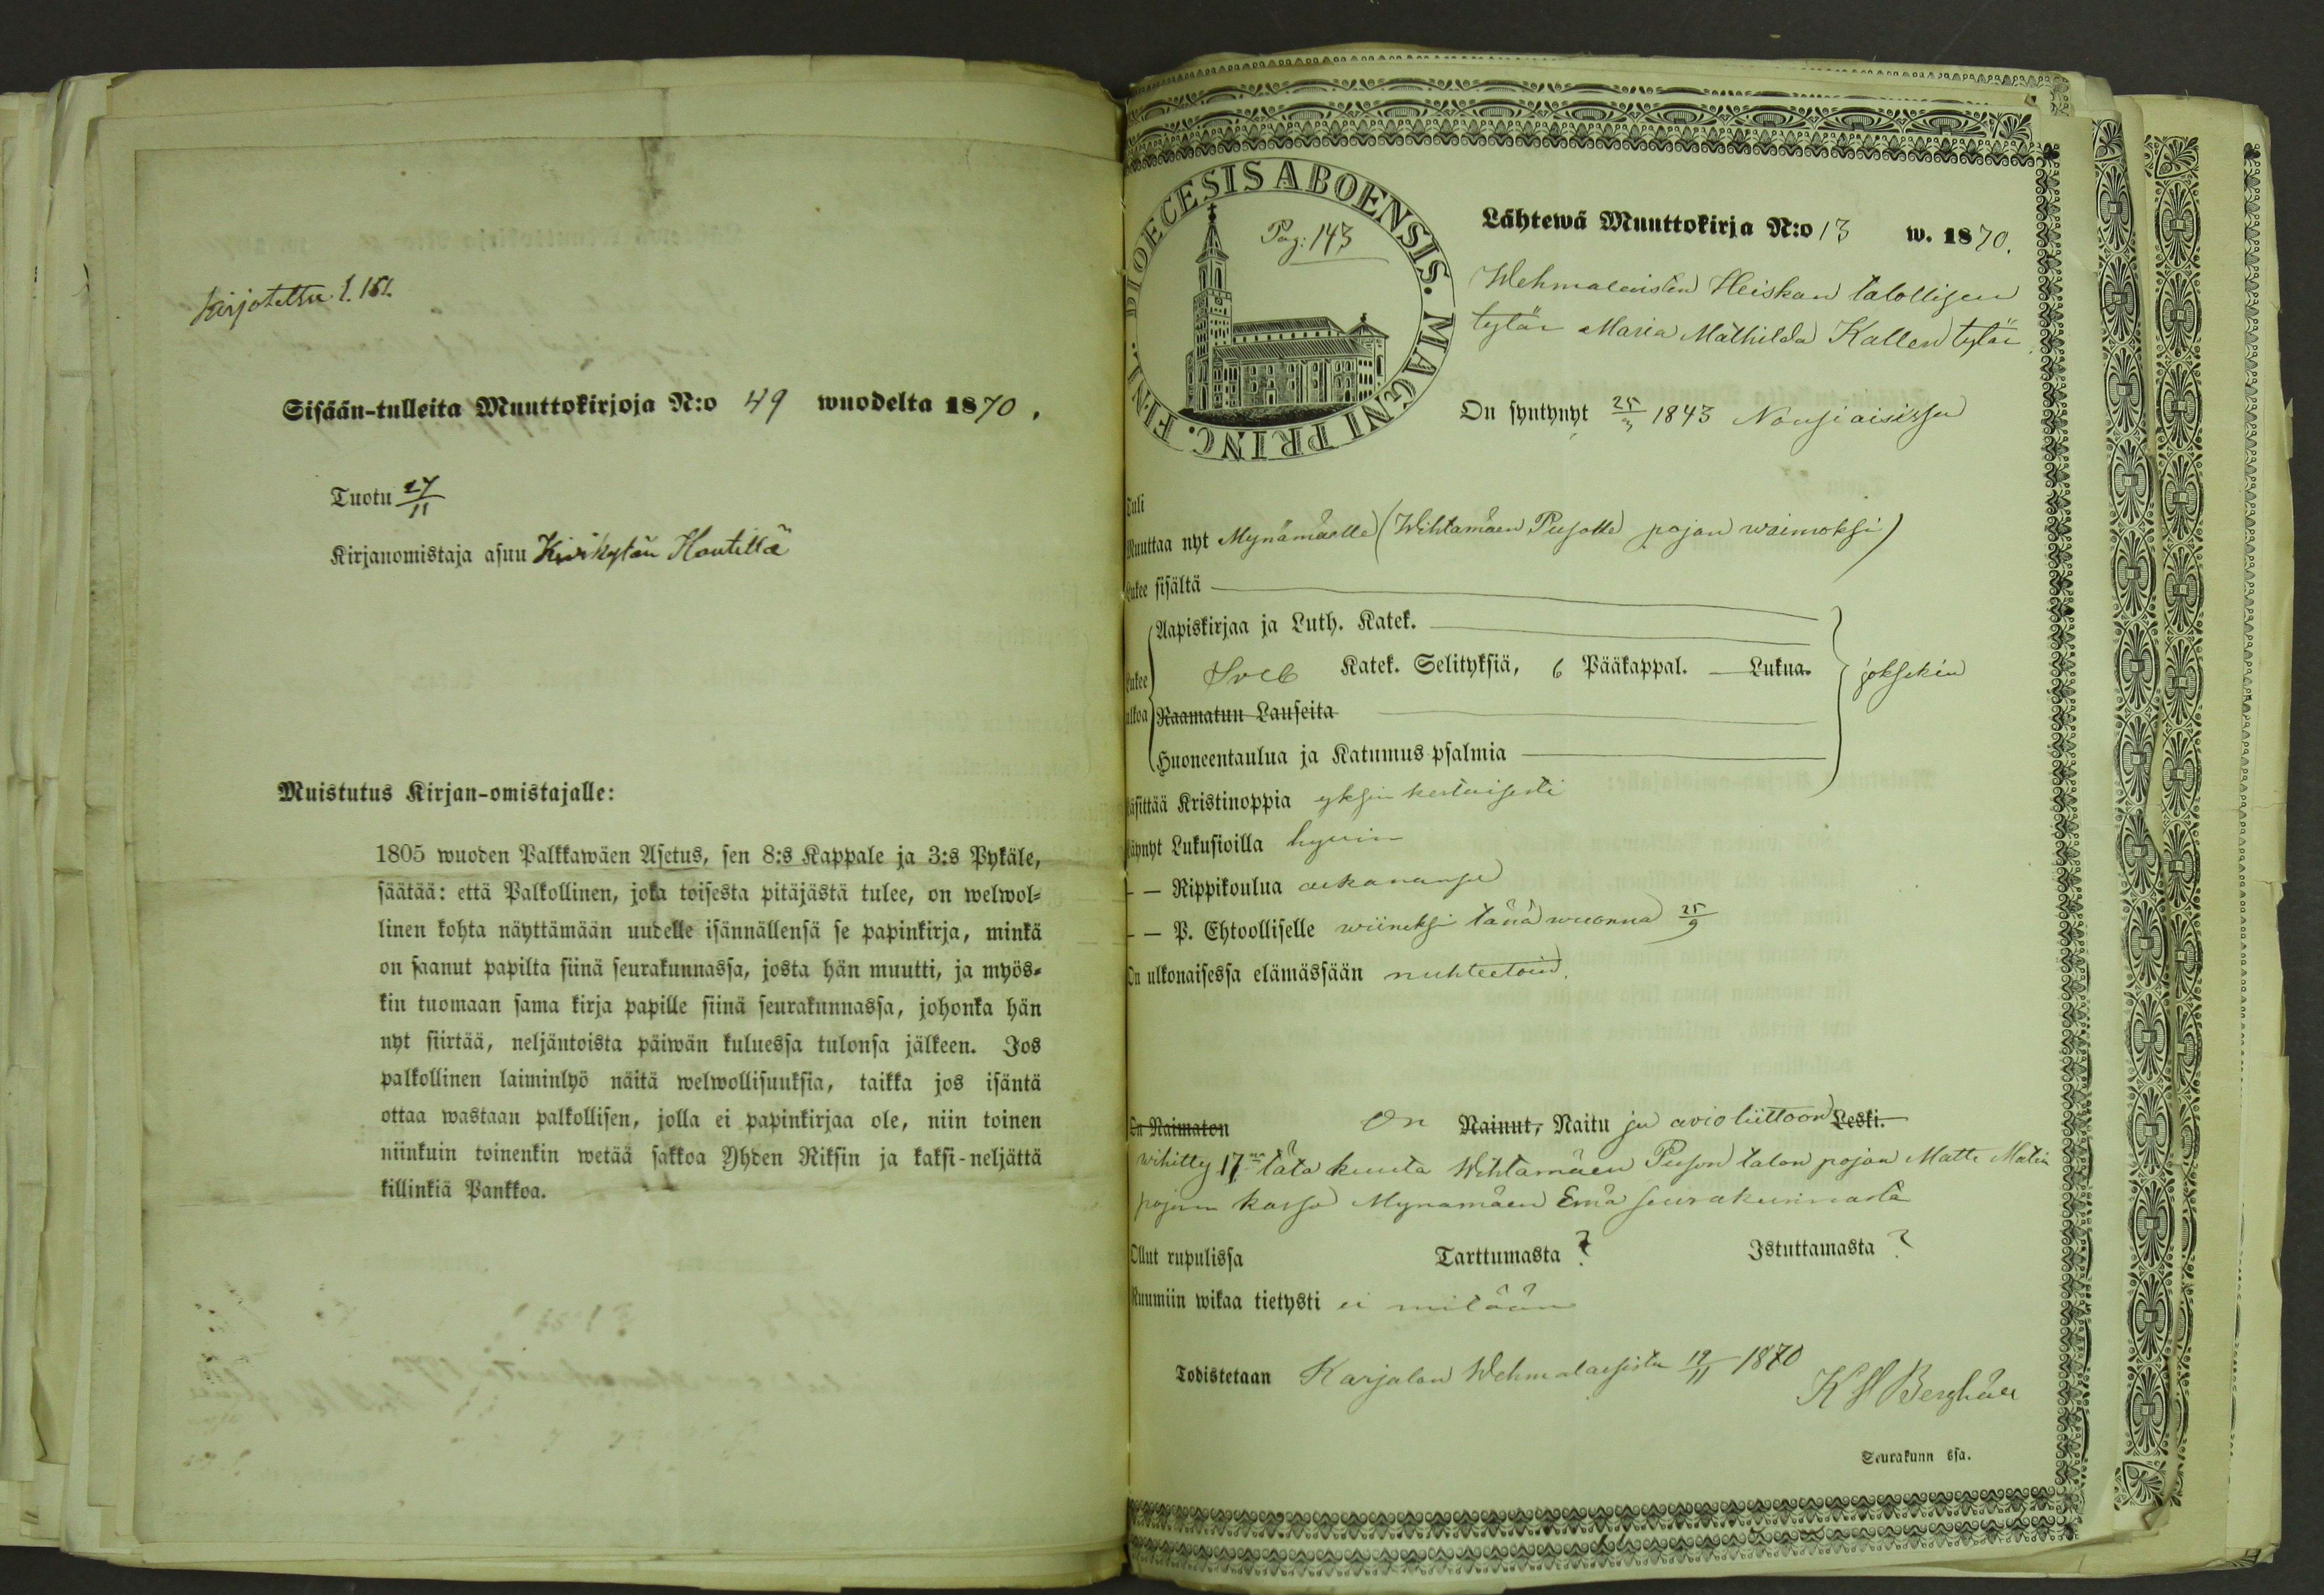 Kirjotettu s. 151.
Sisään-tulleita Muuttokirjoja N:o 49 wuodelta 1870.
Tuotu 27/11
Kirjanomistaja asuu Kivikylän Hautillä
Muistutus Kirjan-omistajalle:
1805 wuoden Palkkawäen Asetus, sen 8:s Kappale ja 3:s Pykäle,
säätää: että Palkollinen, joka toisesta pitäjästä tulee, on welwol-
linen kohta näyttämään uudelle isännällensä se papinkirja, minkä
on saanut papilta siinä seurakunnassa, josta hän muutti, ja myös-
kin tuomaan sama kirja papille siinä seurakunnassa, johonka hän
nyt siirtää, neljäntoista päiwän kuluessa tulonsa jälkeen. Jos
palkollinen laiminlyö näitä welwollisuuksia, taikka jos isäntä
ottaa wastaan palkollisen, jolla ei papinkirjaa ole, niin toinen
niinkuin toinenkin wetää sakkoa Yhden Riksin ja kaksi-neljättä
killinkiä Pankkoa.
DIOECESIS ABOENSIS. MAGNI PRINC. FINL.
Pag: 143
Lähtewä Muuttokirja N:o 13 w. 1870.
Wehmalaisten Heiskan talollisen
tytär Maria Mathilda Kallen tytär
On syntynyt 25/3 1843 Nousiaisissa
Tuli
Muuttaa nyt Mynämäelle (Wihtamäen Pusolle pojan waimoksi)
Lukee sisältä
Aapiskirjaa ja Luth. Katek.
Lukee Sveb Katek. Selityksiä, 6 Pääkappal. Lukua. joksikin
ulkoa Raamatun Lauseita
Huoneentaulua ja Katumus-psalmia
Käsittää Kristinoppia yksinkertaisesti
Käynyt Lukusioilla hywin
— — Rippikoulua aikanansa
— — P. Ehtoolliselle wiimeksi tänä wuonna 25/9
On ulkonaisessa elämässään nuhteetoin.
On Naimaton On Nainut, Naitu ja avioliittoon Leski.
wihitty 17 tätä kuuta Wihtamäen Puson talon pojan Matti Matin
pojan kanssa Mynämäen Emä seurakunnasta
Ollut rupulissa Tarttumasta ? Istuttamasta ?
Ruumiin wikaa tietysti ei mitään
Todistetaan Karjalan Wehmalaisista 19/11 1870
Berghäll
Seurakunn ssa.